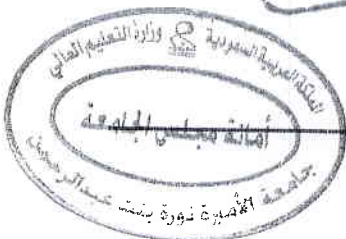 المملكة العربية السعودية وزارة التعليم العالي
أمانة مجلس الجامعة
جامعة الأميرة نورة بنت عبدالرحمن